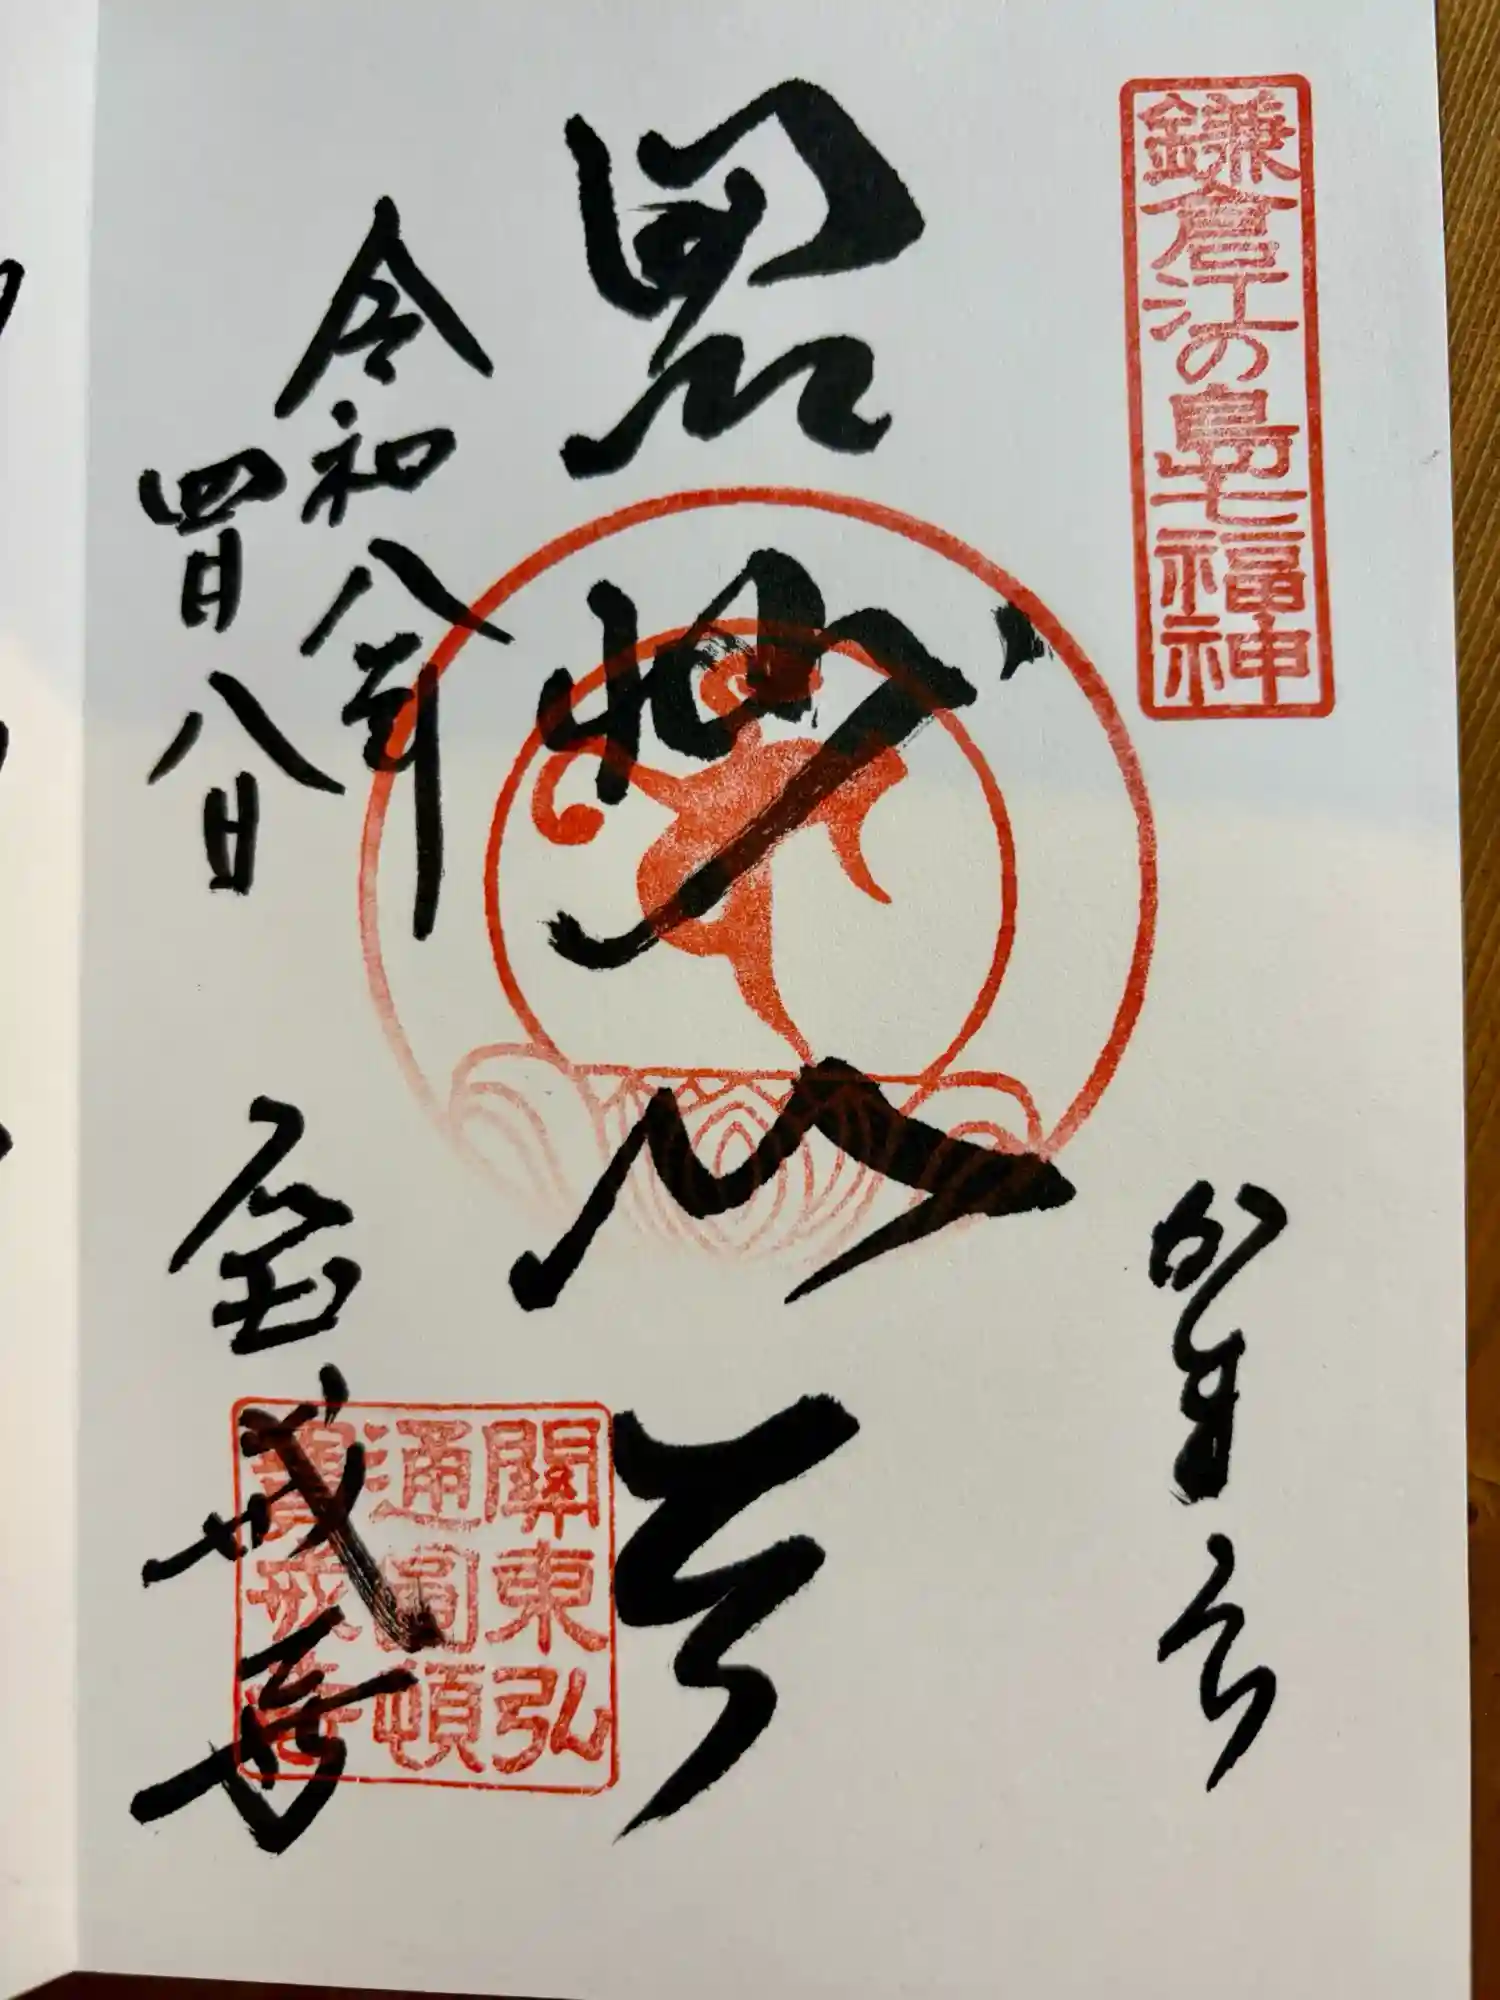 鎌倉江の島七福神
毘沙門天
令和八年
四月八日
宝戒寺
關東弘
通圓頓
寶戒寺